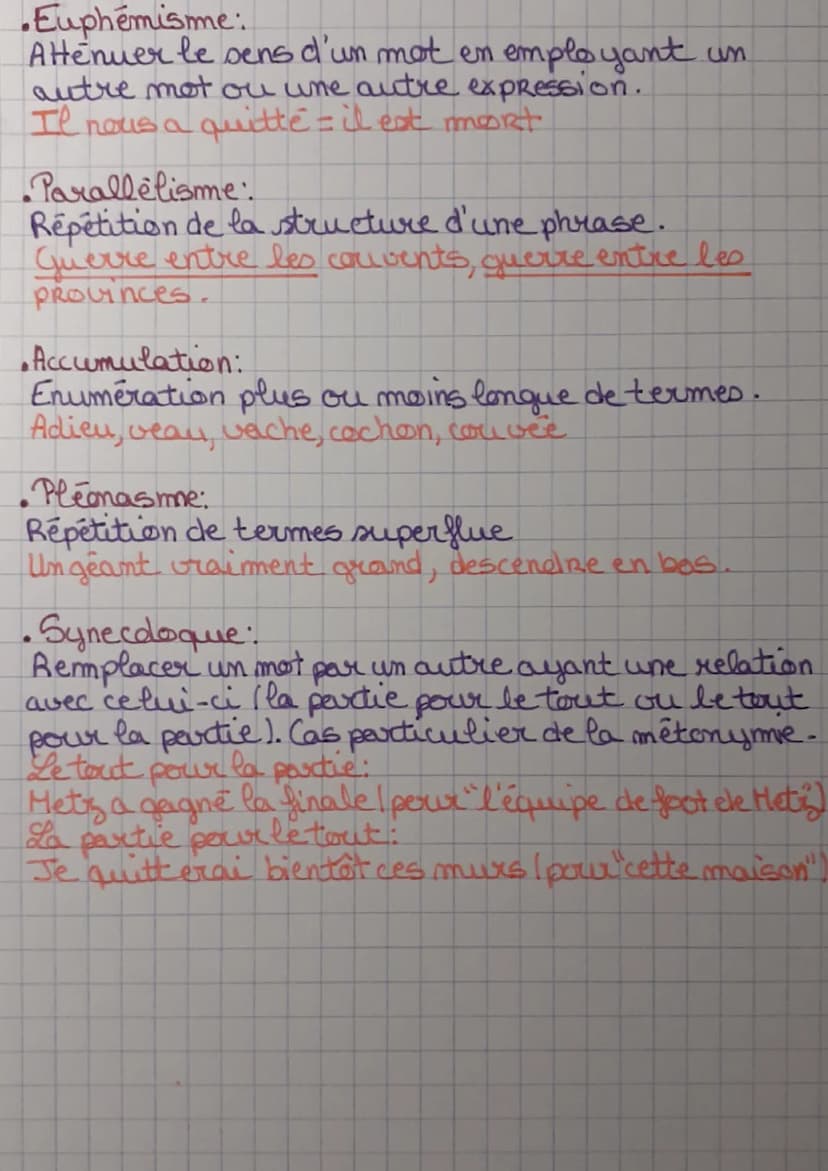 .Euphémisme:
Atténuer le sens d'un mot en employant un
autre mot ou une autre expression.
Il nous a quitté = il est mort
.Parallélisme:
Répétition de la structure d'une phrase.
Guerre entre les couvents, guerre entre les
provinces.
.Accumulation:
Enumération plus ou moins longue de termes.
Adieu, veau, vache, cochon, couvée
.Pléonasme:
Répétition de termes superflue
Un géant vraiment grand, descendre en bas.
.Synecdoque:
Remplacer un mot par un autre ayant une relation
avec celui-ci (la partie pour le tout ou le tout
pour la partie). Cas particulier de la métonymie.
Le tout pour la partie:
Metz a gagné la finale (pour "l'équipe de foot de Metz)
La partie pour le tout:
Je quitterai bientôt ces murs (pour "cette maison")